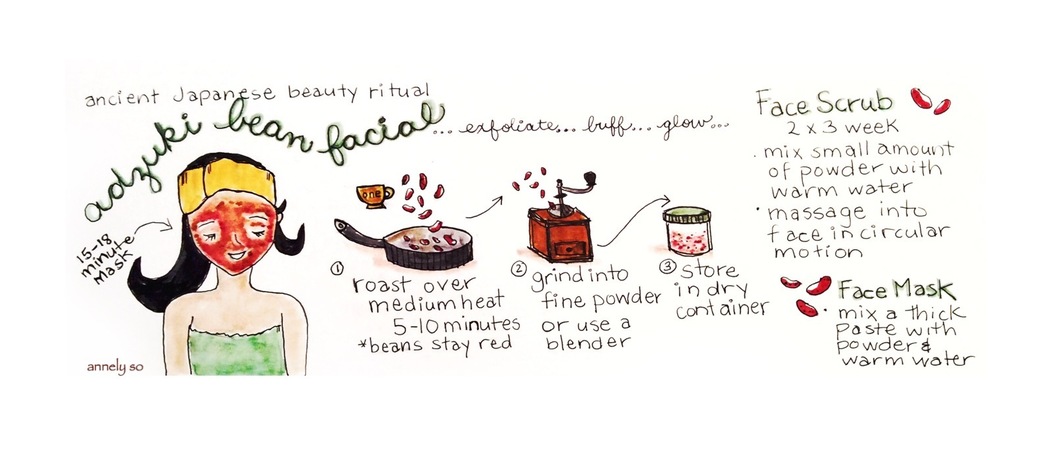 ancient Japanese beauty ritual
adzuki bean facial
... exfoliate... buff... glow...
15-18
minute
mask
one
① roast over
medium heat
5-10 minutes
*beans stay red
② grind into
fine powder
or use a
blender
③ store
in dry
container
Face Scrub
2 x 3 week
. mix small amount
of powder with
warm water
• massage into
face in circular
motion
Face Mask
• mix a thick
paste with
powder &
warm water
annely so